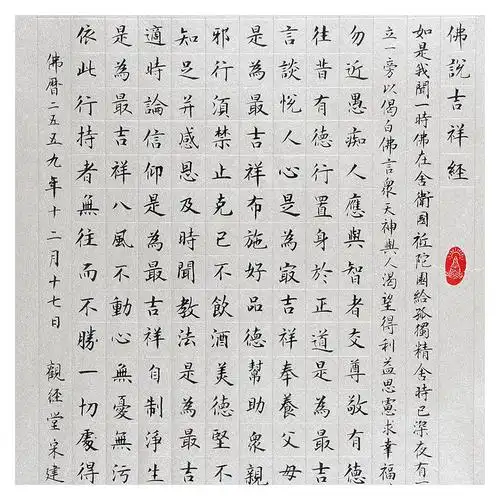 佛說吉祥經
如是我聞一時佛在舍衛國祇陀園給孤獨精舍時已深夜有一
立一旁以偈白佛言眾天神與人渴望得利益思慮求幸福
勿近愚痴人應與智者交尊敬有德
往昔有德行置身於正道是為最吉
言談悅人心是為最吉祥奉養父母
是為最吉祥布施好品德幫助眾親
邪行須禁止克己不飲酒美德堅不
知足并感恩及時聞教法是為最吉
適時論信仰是為最吉祥自制淨生
是為最吉祥八風不動心無憂無污
依此行持者無往而不勝一切處得
佛曆二五五九年十二月十七日 觀經堂宋建